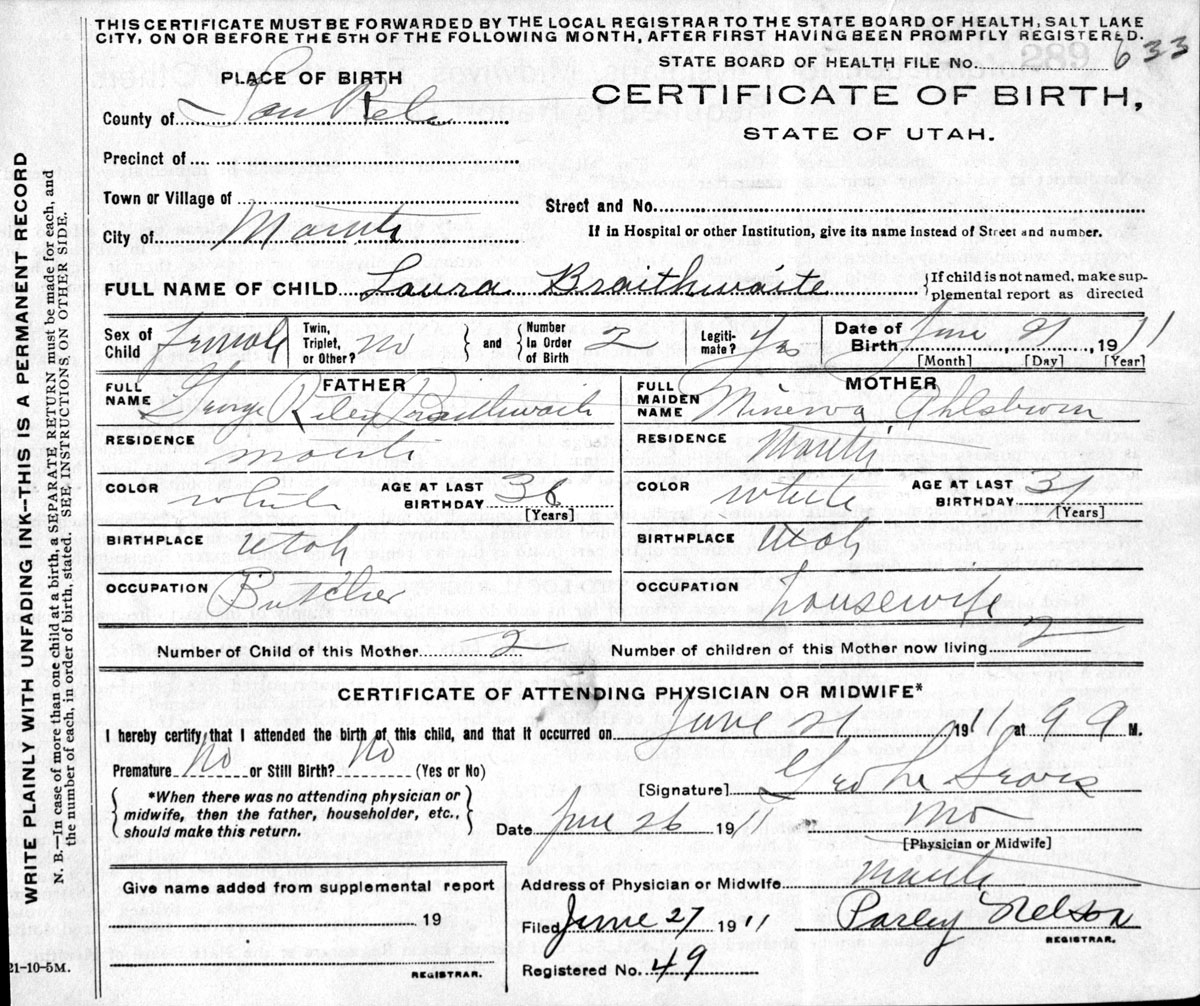 THIS CERTIFICATE MUST BE FORWARDED BY THE LOCAL REGISTRAR TO THE STATE BOARD OF HEALTH, SALT LAKE
CITY, ON OR BEFORE THE 5TH OF THE FOLLOWING MONTH, AFTER FIRST HAVING BEEN PROMPTLY REGISTERED.
STATE BOARD OF HEALTH FILE No. 633
PLACE OF BIRTH
CERTIFICATE OF BIRTH,
STATE OF UTAH.
County of San Pete
Precinct of
Town or Village of
Street and No.
City of Manti
If in Hospital or other Institution, give its name instead of Street and number.
FULL NAME OF CHILD Laura Braithwaite
{If child is not named, make sup-
plemental report as directed
Sex of Child Female
Twin, Triplet, or Other? No
} and {
Number In Order of Birth 2
Legiti-mate? Yes
Date of Birth June 21, 1911
[Month] [Day] [Year]
FATHER
FULL NAME George Riley Braithwaite
RESIDENCE Manti
COLOR White AGE AT LAST BIRTHDAY 38
[Years]
BIRTHPLACE Utah
OCCUPATION Butcher
MOTHER
FULL MAIDEN NAME Minerva
RESIDENCE Manti
COLOR White AGE AT LAST BIRTHDAY
[Years]
BIRTHPLACE Utah
OCCUPATION housewife
Number of Child of this Mother 2 Number of children of this Mother now living 2
CERTIFICATE OF ATTENDING PHYSICIAN OR MIDWIFE*
I hereby certify that I attended the birth of this child, and that it occurred on June 21 1911 at 9 M.
Premature No or Still Birth? No (Yes or No)
{*When there was no attending physician or
midwife, then the father, householder, etc.,
should make this return.}
[Signature] Geo
Date June 26 1911 MD
[Physician or Midwife]
Give name added from supplemental report
19
REGISTRAR.
Address of Physician or Midwife Manti
Filed June 27 1911 Parley Nelson
REGISTRAR.
Registered No. 49
21-10-5M.
WRITE PLAINLY WITH UNFADING INK--THIS IS A PERMANENT RECORD
N. B.—In case of more than one child at a birth, a SEPARATE RETURN must be made for each, and
the number of each, in order of birth, stated. SEE INSTRUCTIONS, ON OTHER SIDE.